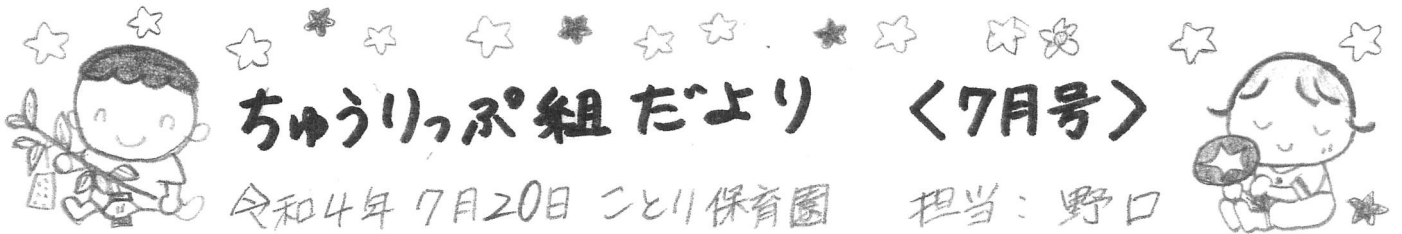 ちゅうりっぷ組だより 〈7月号〉
令和4年7月20日 ことり保育園 担当：野口